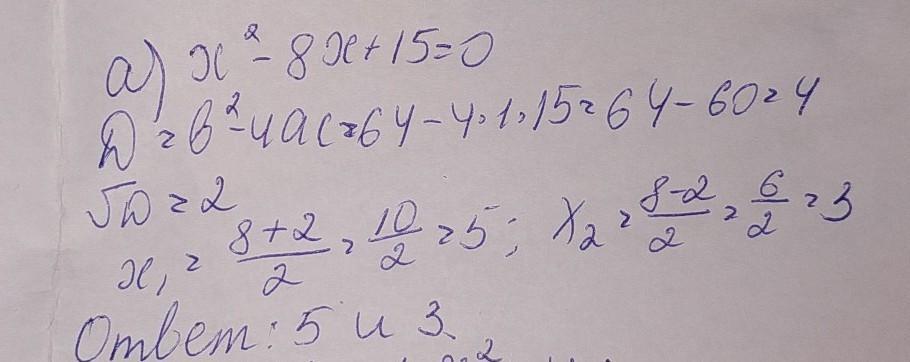 а) x² - 8x + 15 = 0
D = b² - 4ac = 64 - 4·1·15 = 64 - 60 = 4
√D = 2
x₁ = (8+2)/2 = 10/2 = 5; x₂ = (8-2)/2 = 6/2 = 3
Ответ: 5 и 3.